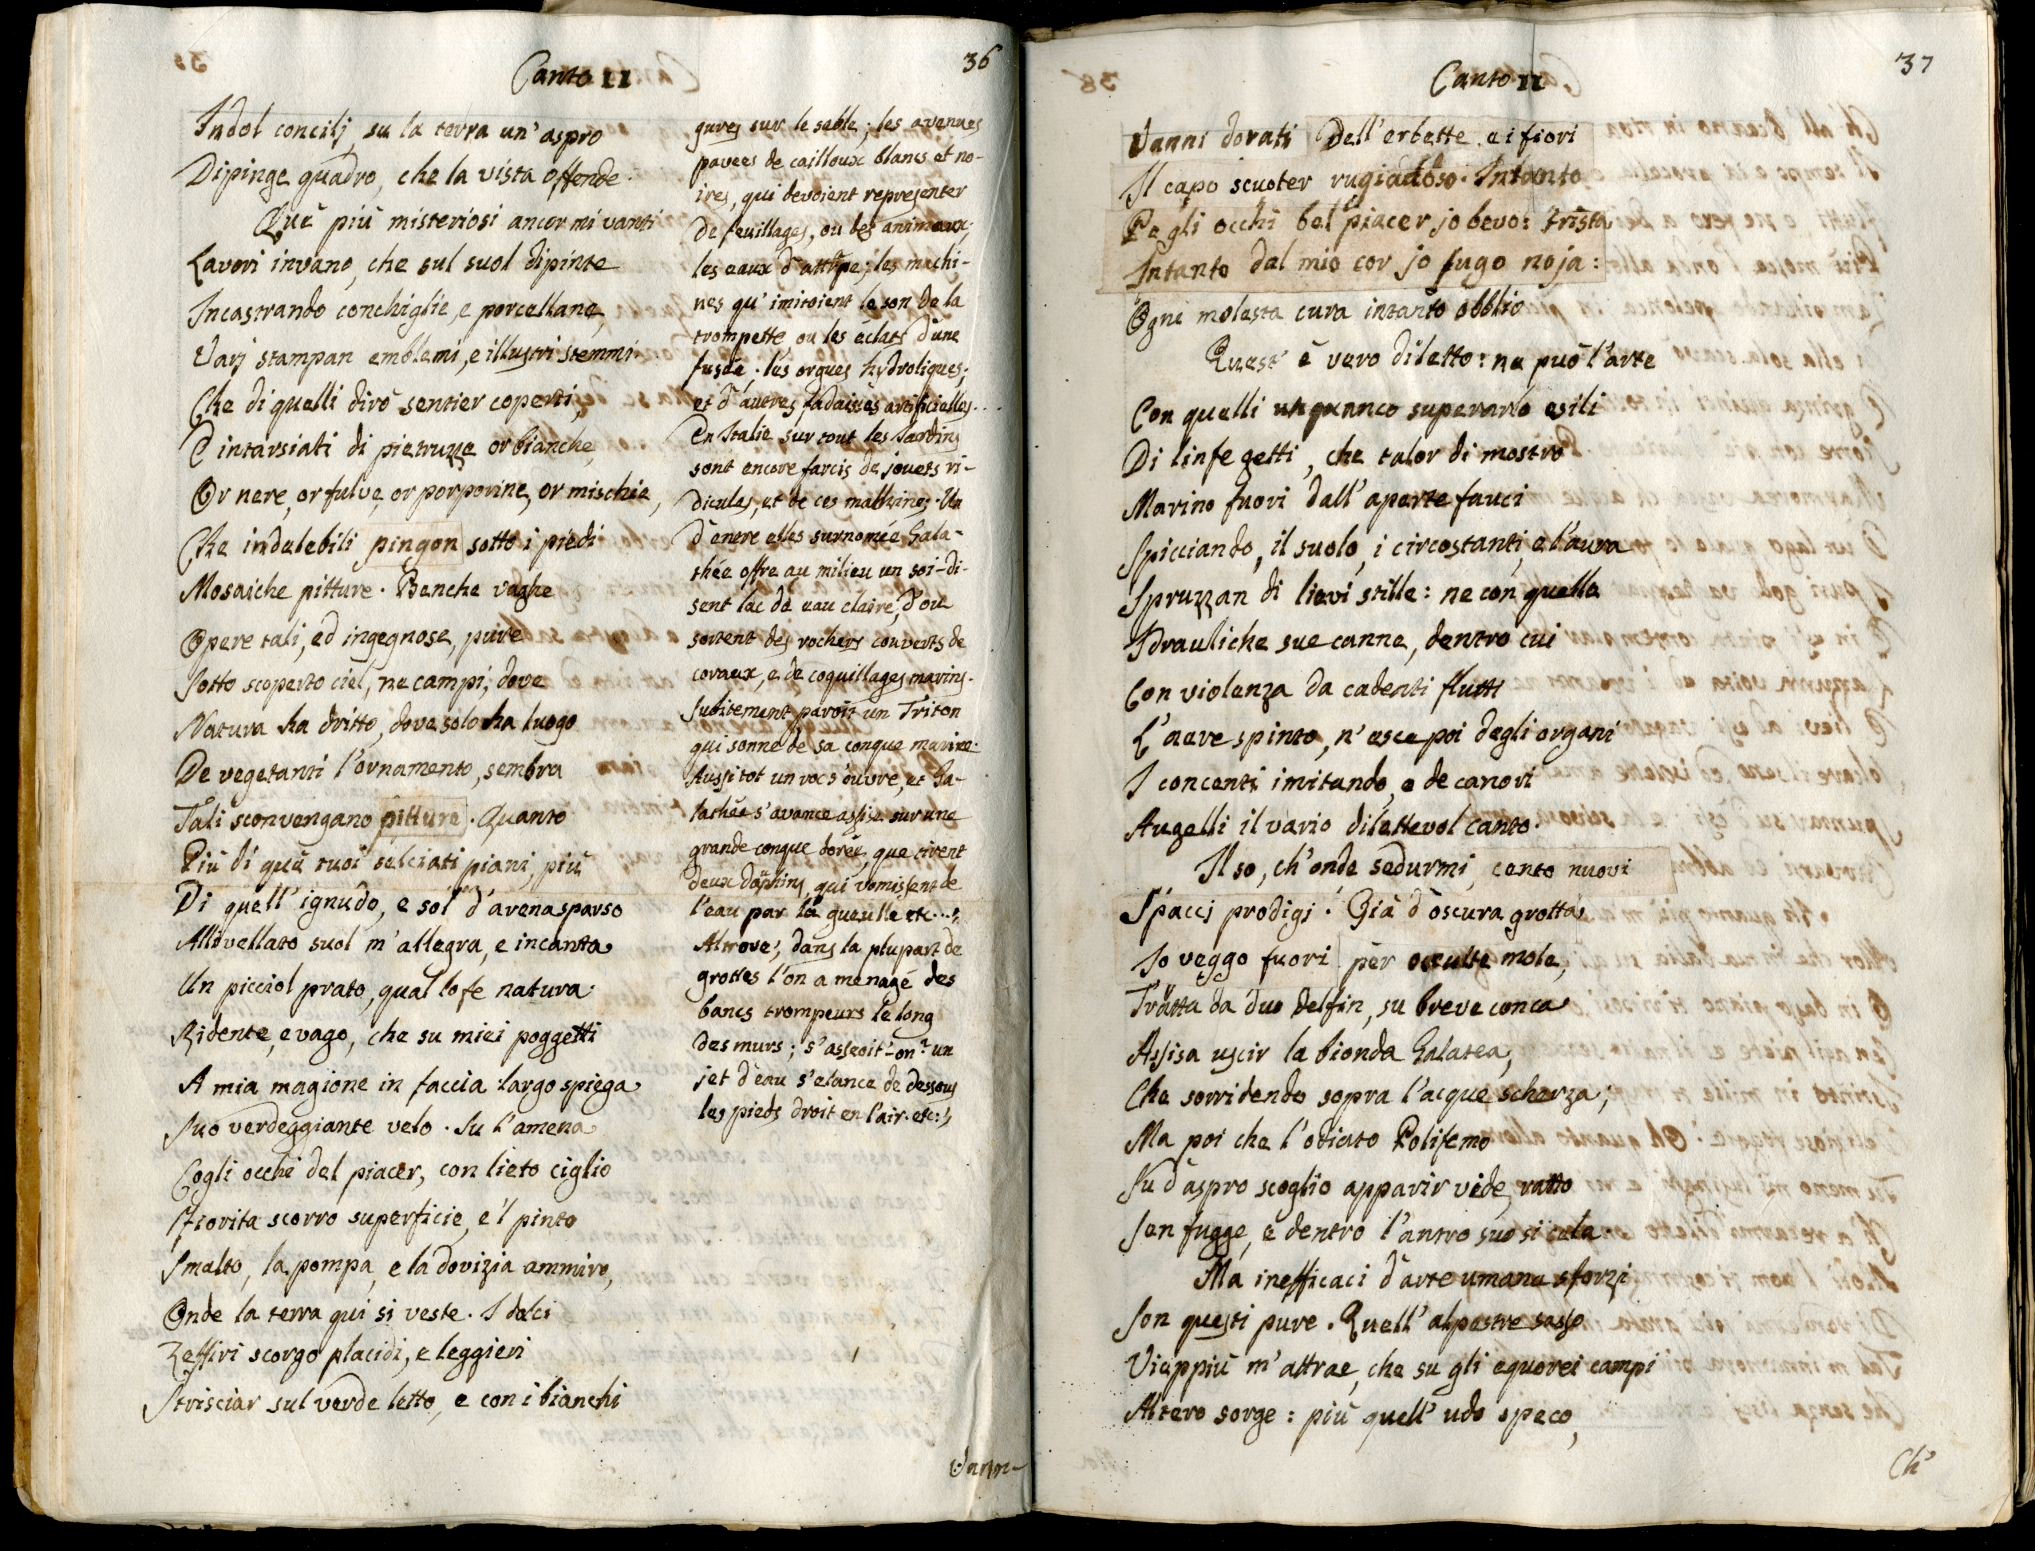 Canto II
36
Indol concilj, su la terra un' aspro
Dipinge quadro, che la vista offende.
Què più misteriosi ancor mi vanti
Lavori invano, che sul suol dipinte
Incastrando conchiglie, e porcellane,
Varj stampan emblemi, e illustri stemmi.
Che di quelli dirò sentier coperti,
E intarsiati di pietruzze or bianche,
Or nere, or fulve, or porporine, or mischie,
Che indelebili pingon sotto i piedi
Mosaiche pitture. Benche vaghe
Opere tali, ed ingegnose, pure
Sotto scoperto ciel, ne campi, dove
Natura ha dritto, dove solo ha luogo
De vegetanti l'ornamento, sembra
Tali sconvengano pitture. Quanto
Più di què tuoi selciati piani, più
Di quell' ignudo, e sol d'arena sparso
Allivellato suol m'allegra, e incanta
Un picciol prato, qual lo fe natura.
Ridente, e vago, che su miei poggetti
A mia magione in faccia largo spiega
Suo verdeggiante velo. Su l'amena
Cogli occhi del piacer, con lieto ciglio
Fiorita scorro superficie, e 'l pinto
Smalto, la pompa, e la dovizia ammiro,
Onde la terra qui si veste. I dolci
Zeffiri scorgo placidi, e leggieri
Strisciar sul verde letto, e con i bianchi
gures sur le sable; les avenues
pavees de cailloux blancs et no-
ires, qui devoient representer
de feuillages, ou des animaux;
les eaux d'attrpe; les machi-
nes qu' imitoient le son de la
trompette ou les éclats d'une
fusée. les orgues hydroliques;
et d'autres fadaises artificielles...
En Italie sur tout les Jardins
sont encore farcis de jouets ri-
dicules, et de ces machines. Un
d'enere elles surnomée Gala-
thée offre au milieu un soi-di-
sent lac de eau claire, d'ou
sortent des rochers couverts de
coraux, e de coquillages marins.
Subitement paroît un Triton
qui sonne de sa conque marine.
Aussitot un roc s'ouvre, et Ga-
lathée s'avance assise sur une
grande conque dorée, que tirent
deux dauphins, qui vomissent de
l'eau par la gueulle etc...;
Altrove, dans la plupart de
grottes l'on a menagé des
bancs trompeurs le long
des murs; s'asseoit-on? un
jet d'eau s'elance de dessous
les pieds droit en l'air. etc:;
Vanni
Canto II
37
Vanni dorati Dell'erbette, e i fiori
Il capo scuoter rugiadoso. Intanto
Pe gli occhi bel piacer jo bevo: trista
Intanto dal mio cor jo fugo noja:
Ogni molesta cura intanto obblio
Quest' è vero diletto: ne può l'arte
Con quelli unquanco superarlo esili
Di linfe getti, che talor di mostro
Marino fuori dall'aperte fauci
Spicciando, il suolo, i circostanti, e l'aura
Spruzzan di lievi stille: ne con quelle
Idrauliche sue canne, dentro cui
Con violenza da cadenti flutti
L'aere spinto, n'esce poi degli organi
I concenti imitando, e de canori
Augelli il vario dilettevol canto.
Il so, ch'onde sedurmi, cento nuovi
Spacci prodigi. Già d'oscura grotta
Io veggo fuori per occulte mole,
Tratta da due delfin, su breve conca
Assisa uscir la bionda Galatea,
Che sorridendo sopra l'acque scherza;
Ma poi che l'odiato Polifemo
Su d'aspro scoglio apparir vede, ratto
Sen fugge, e dentro l'antro suo si cela.
Ma inefficaci d'arte umana sforzi
Son questi pure. Quell'alpestre sasso
Vieppiù m'attrae, che su gli equorei campi
Altero sorge: più quell'udo speco,
Ch'